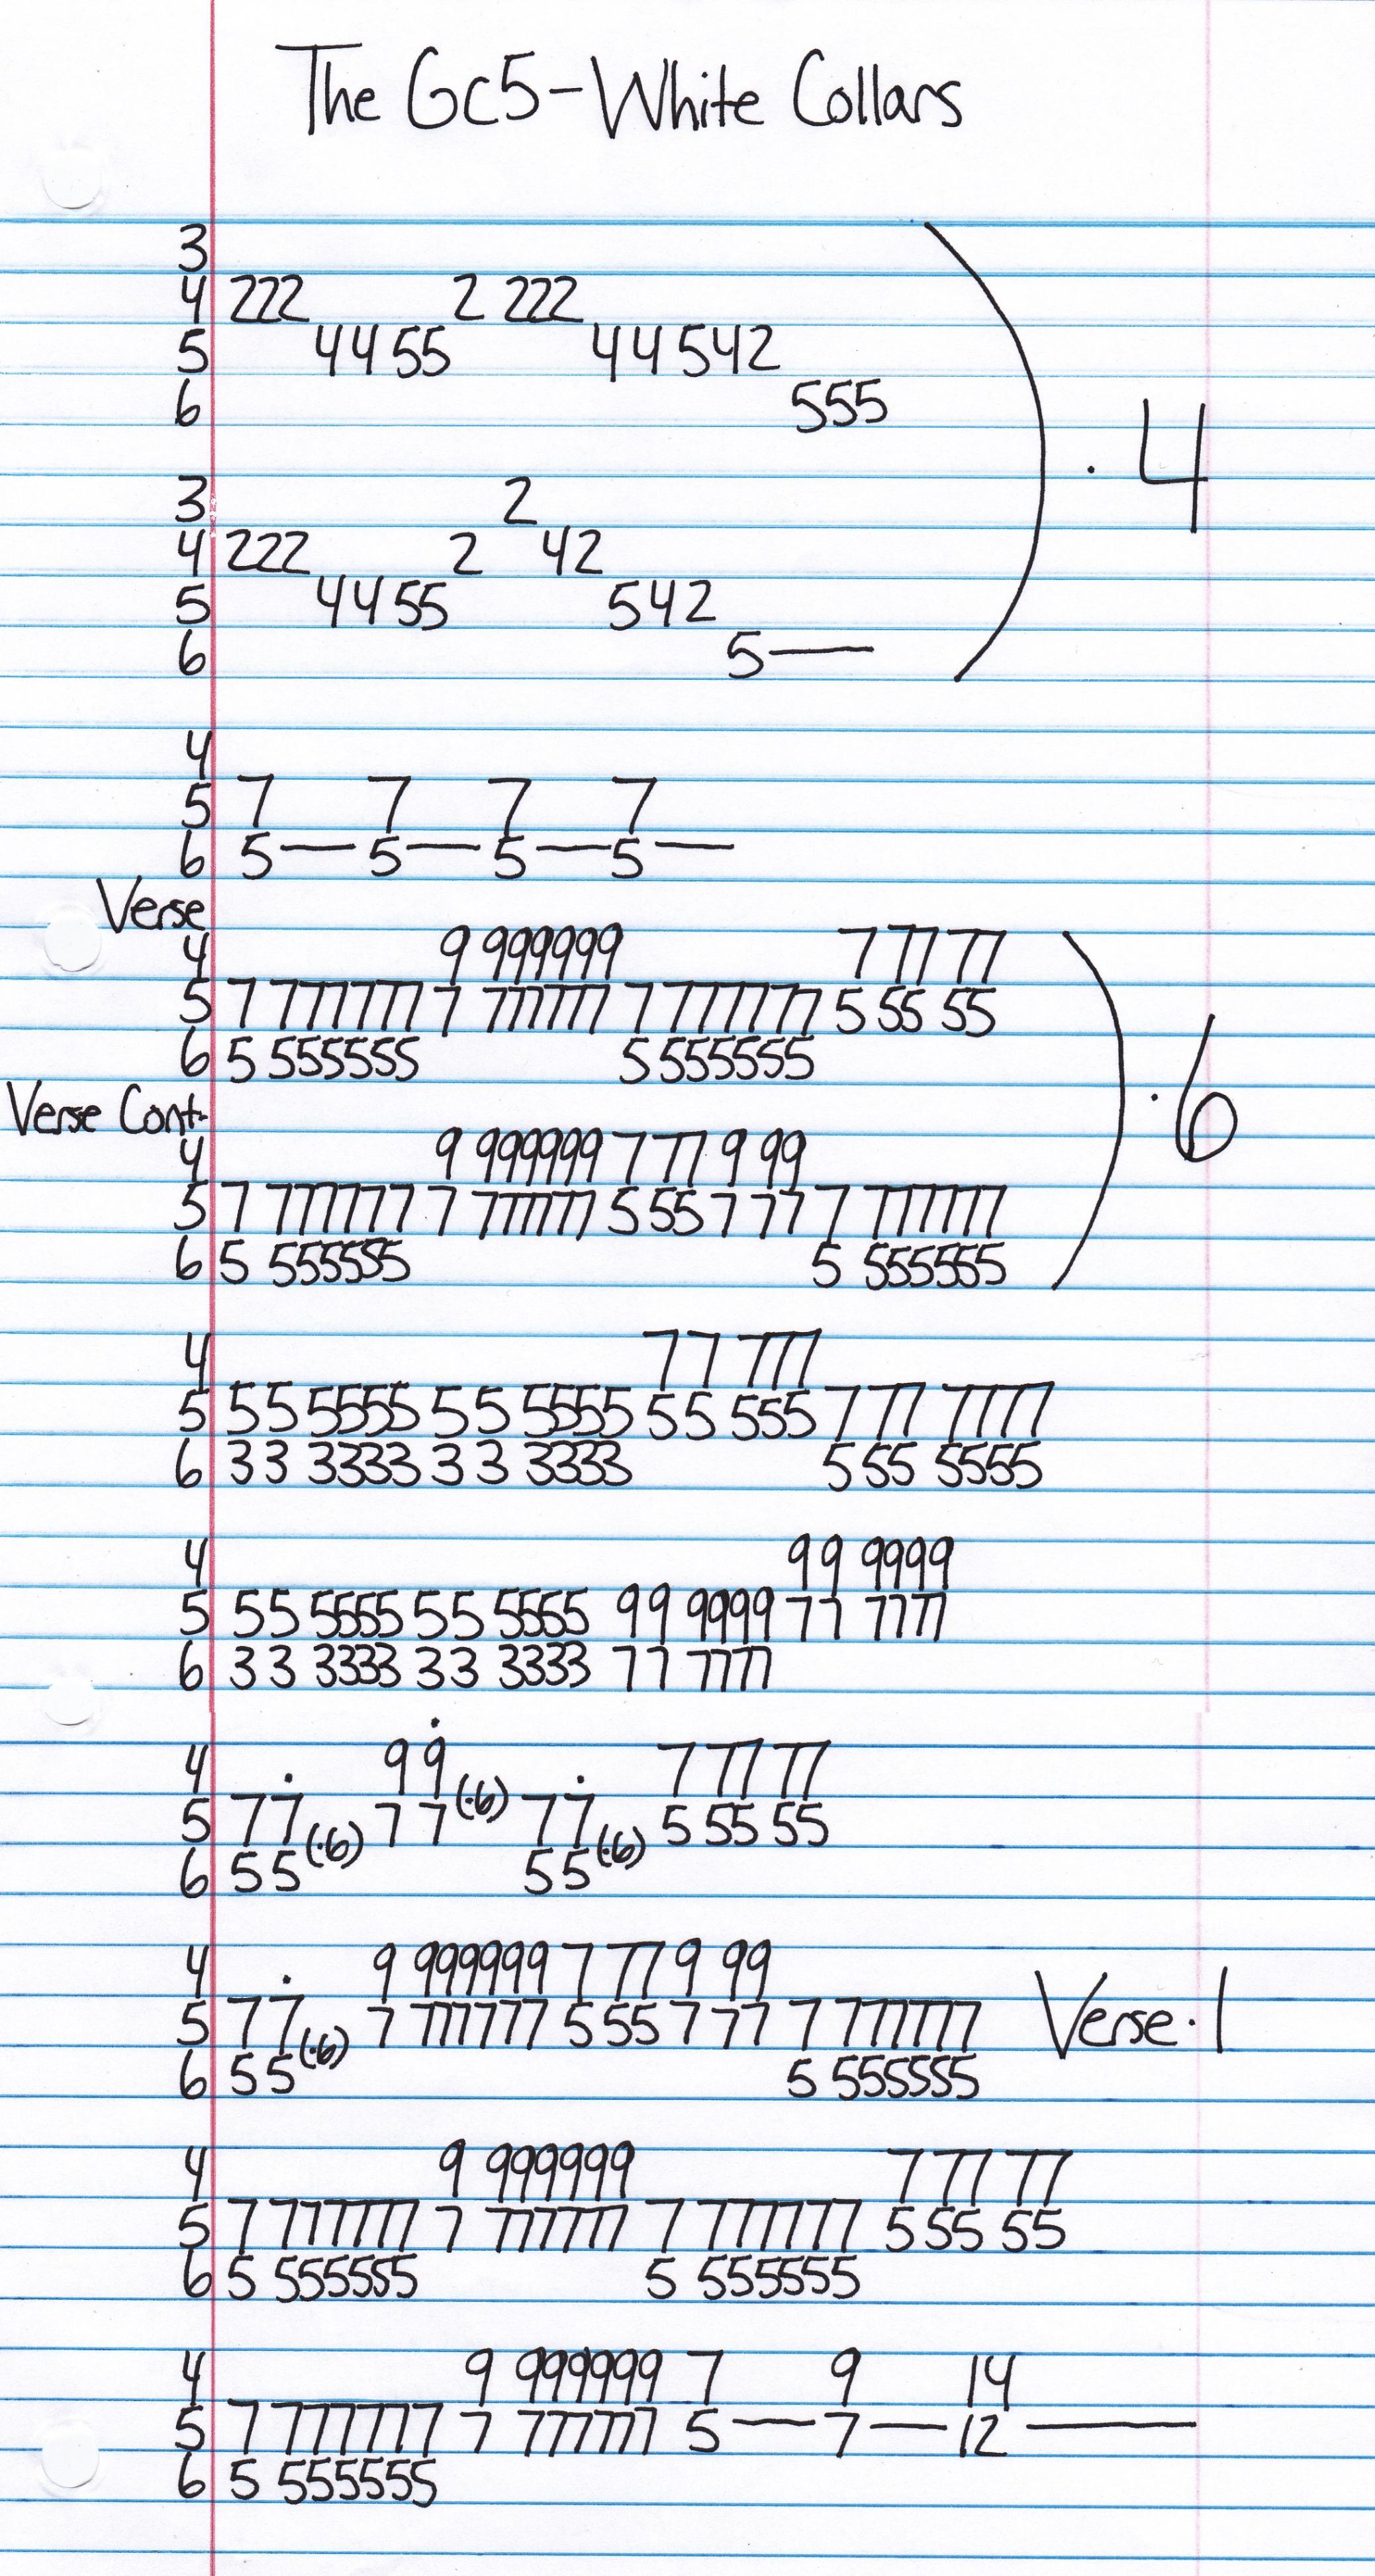 The Gc5-White Collars
3
4 222 2 222
5 44 55 44 542
6 555
3 2
4 222 2 42
5 44 55 542
6 5—
· 4
4
5 7 7 7 7
6 5—5—5—5—
Verse
4 9 999999 7 77 77
5 7 777777 7 777777 7 777777 5 55 55
6 5 555555 5 555555
Verse Cont.
4 9 999999 7 77 9 99
5 7 777777 7 777777 5 55 7 77 7 777777
6 5 555555 5 555555
· 6
4 77 777
5 55 5555 55 5555 55 555 7 77 7777
6 33 3333 33 3333 5 55 5555
4 99 9999
5 55 5555 55 5555 99 9999 77 7777
6 33 3333 33 3333 77 7777
4 99(·6) 7 77 77
5 77(·6) 77 77(·6) 5 55 55
6 55 55
4 9 999999 7 77 9 99
5 77(·6) 7 777777 5 55 7 77 7 777777
6 55 5 555555
Verse·1
4 9 999999 7 77 77
5 7 777777 7 777777 7 777777 5 55 55
6 5 555555 5 555555
4 9 999999 7 9 14
5 7 777777 7 777777 5—7—12—
6 5 555555